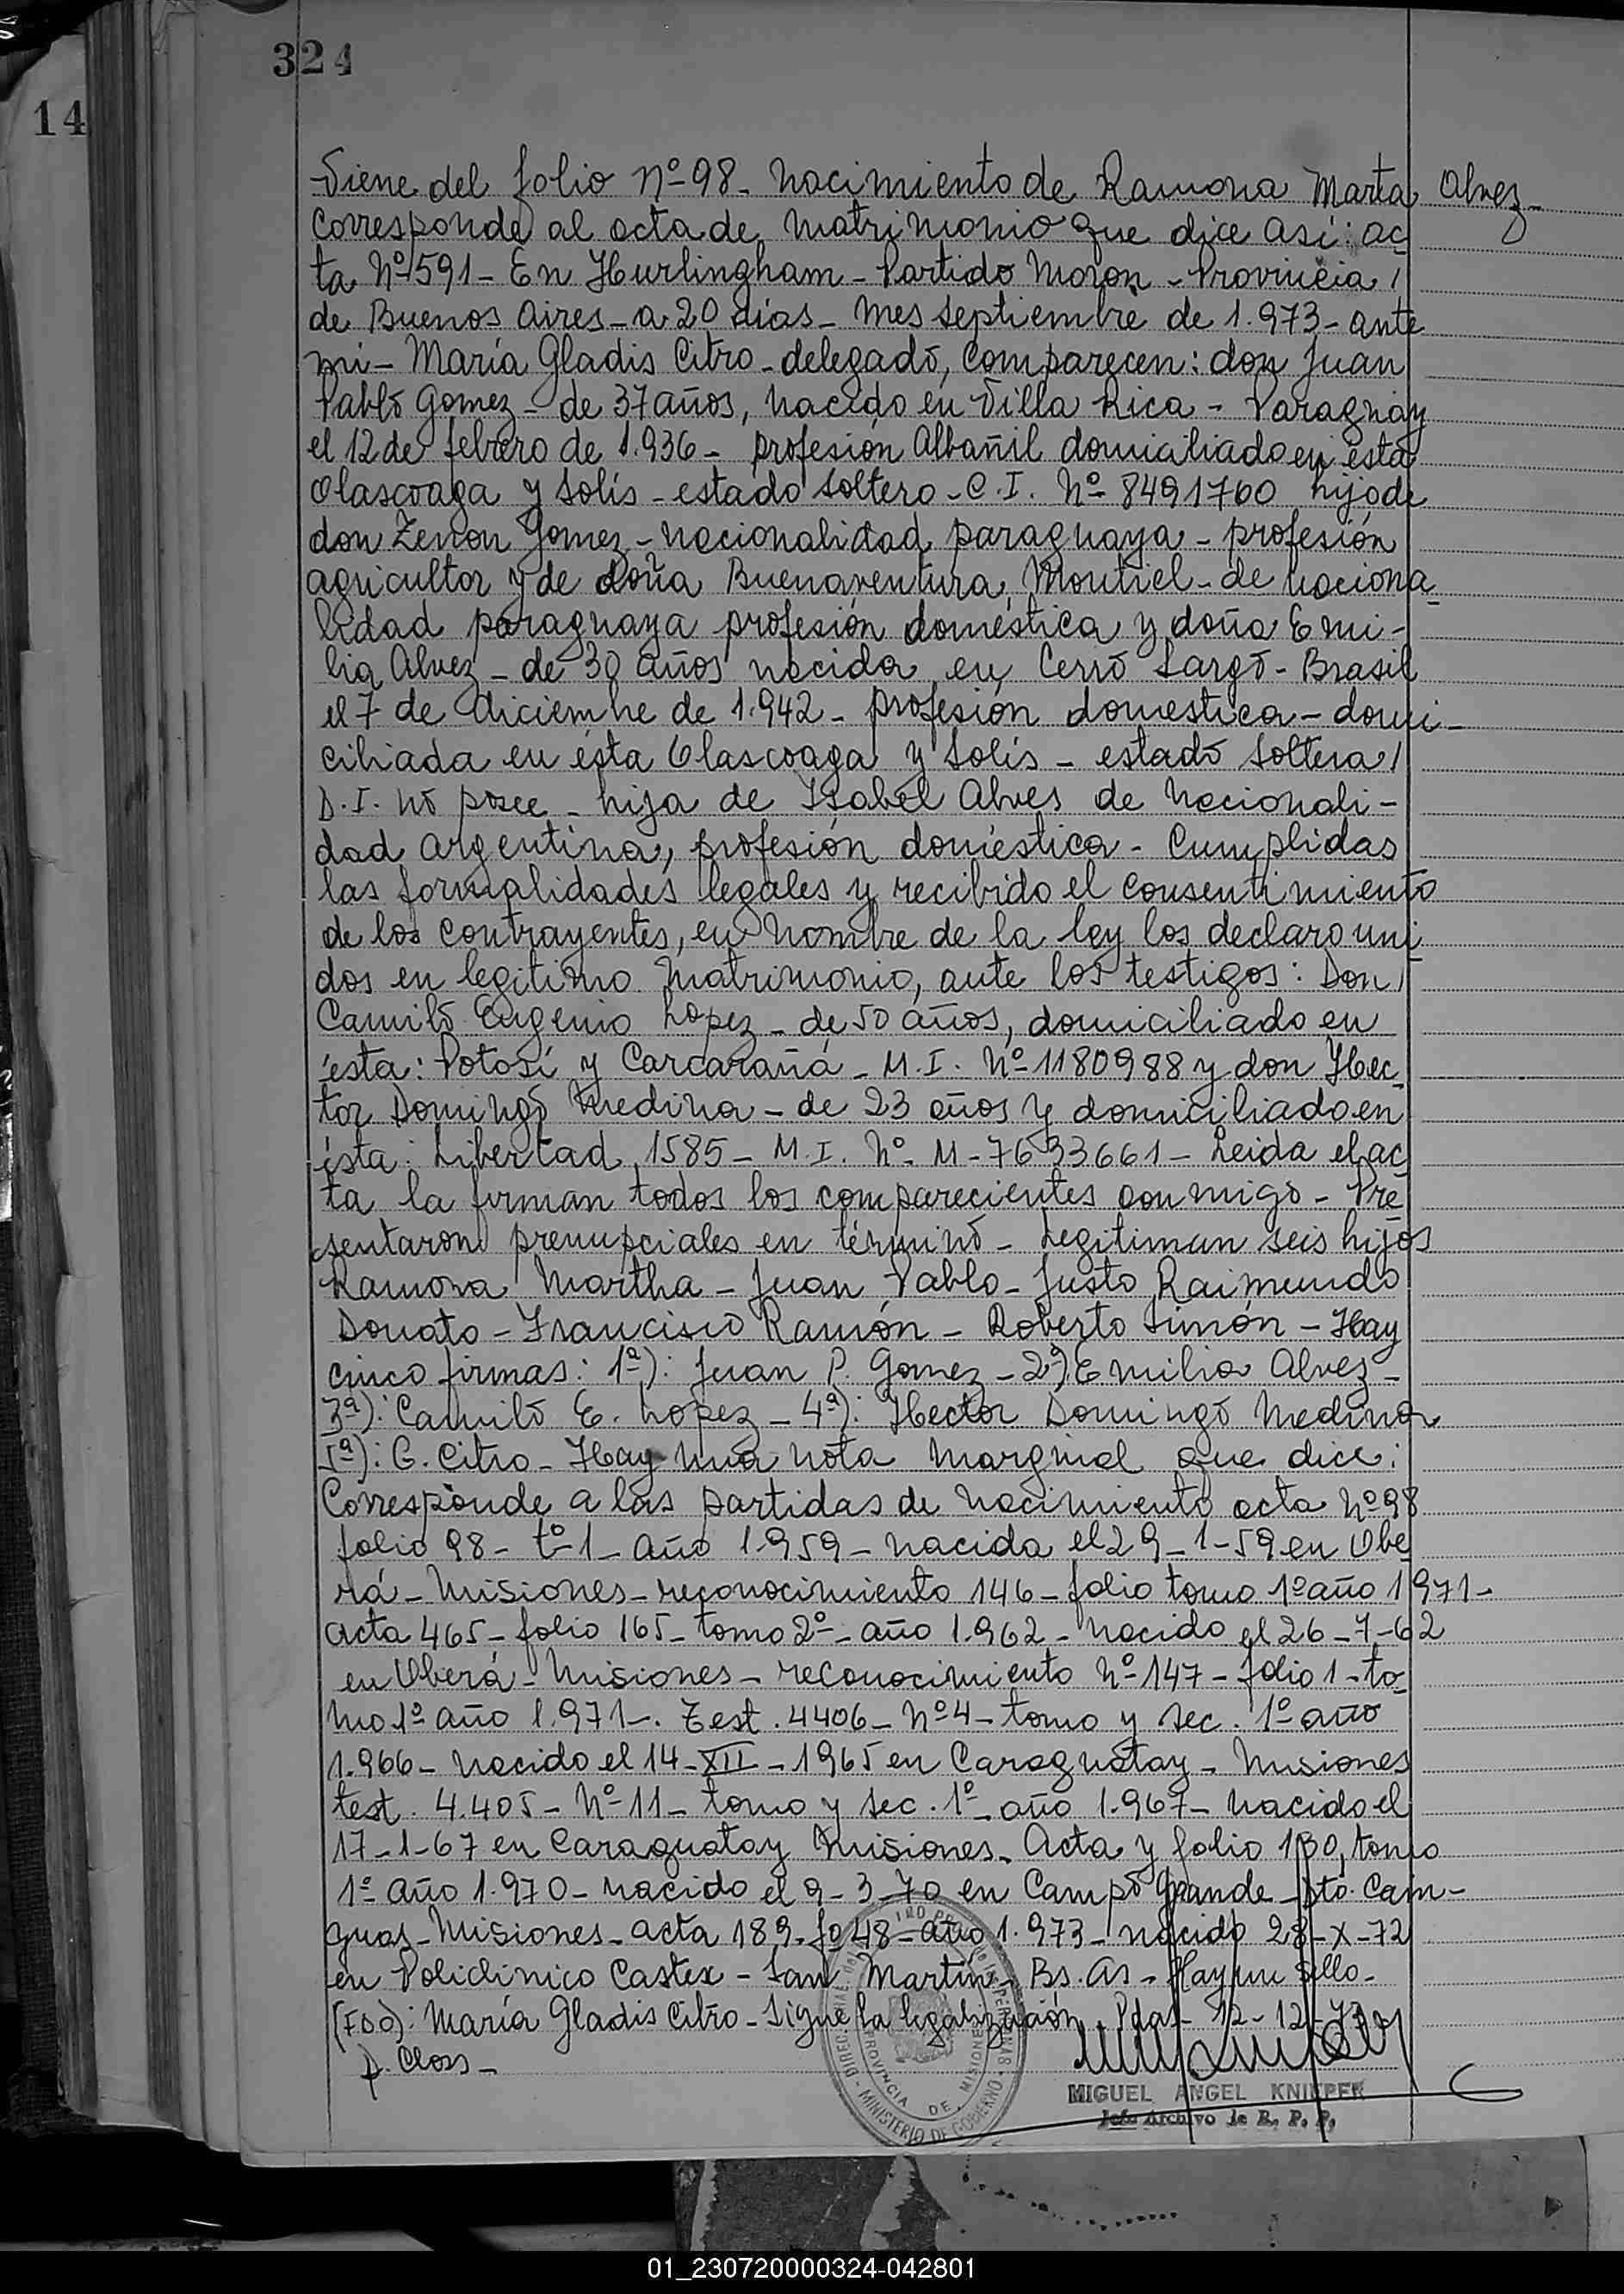 324
14
Viene del folio Nº 98 - Nacimiento de Ramona Marta Alvez -
Corresponde al acta de Matrimonio que dice así: ac
ta Nº 591 - En Hurlingham - Partido Moron - Provincia /
de Buenos Aires - a 20 días - Mes septiembre de 1.973 - ante
mi - María Gladis Citro - delegado, comparecen: don Juan
Pablo Gomez - de 37 años, nacido en Villa Rica - Paraguay
el 12 de febrero de 1.936 - profesión Albañil domiciliado en esta
Olascoaga y Solís - estado soltero - C.I. Nº 8491760 hijo de
don Zenon Gomez - nacionalidad paraguaya - profesión
agricultor y de doña Buenaventura Montiel - de naciona_
lidad paraguaya profesión doméstica y doña Emi-
lia Alvez - de 30 años nacida en Cerro Largo - Brasil
el 7 de diciembre de 1.942 - profesión domestica - domi_
ciliada en ésta Olascoaga y Solís - estado soltera /
D.I. no posee - hija de Isabel Alves de nacionali-
dad argentina, profesión doméstica - Cumplidas
las formalidades legales y recibido el consentimiento
de los contrayentes, en nombre de la ley los declaro uni_
dos en legitimo matrimonio, ante los testigos: Don /
Camilo Eugenio Lopez - de 50 años, domiciliado en
ésta: Potosí y Carcarañá - M.I. Nº 1180988 y don Hec_
tor Domingo Medina - de 23 años y domiciliado en
ésta: Libertad 1585 - M.I. Nº M-7633661 - Leida el ac_
ta la firman todos los comparecientes conmigo - Pre_
sentaron prenupciales en término - Legitiman seis hijos
Ramona Martha - Juan Pablo - Justo Raimundo
Donato - Francisco Ramón - Roberto Simón - Hay
cinco firmas: 1ª): Juan P. Gomez - 2ª) Emilia Alvez -
3ª): Camilo E. Lopez - 4ª): Hector Domingo Medina
5ª): G. Citro - Hay una nota marginal que dice:
Corresponde a las partidas de nacimiento acta Nº 98
folio 98 - tº 1 - año 1.959 - nacida el 29-1-59 en Obe_
rá - Misiones - reconocimiento 146 - folio tomo 1º año 1971 -
acta 465 - folio 165 - tomo 2º - año 1.962 - nacido el 26-7-62
en Oberá - Misiones - reconocimiento Nº 147 - folio 1 - to_
mo 1º año 1.971 -. Test. 4406 - Nº 4 - tomo y sec. 1º año
1.966 - nacido el 14-XII-1965 en Caraguatay - Misiones
test. 4.405 - Nº 11 - tomo y sec. 1º - año 1.967 - nacido el
17-1-67 en Caraguatay Misiones - Acta y folio 130, tomo
1º año 1.970 - nacido el 9-3-70 en Campo Grande - Dto. Cain-
guas - Misiones - acta 189 - fº 48 - año 1.973 - nacido 28-X-72
en Policlinico Castex - San Martín - Bs. As - Hay un sello -
(FDO): María Gladis Citro - Sigue la legalización - Pdas - 12-12-73
D. Closs -
MINISTERIO DE GOBIERNO
PROVINCIA DE MISIONES
MIGUEL ANGEL KNIEPER
Jefe Archivo de R. P. P.
01_230720000324-042801